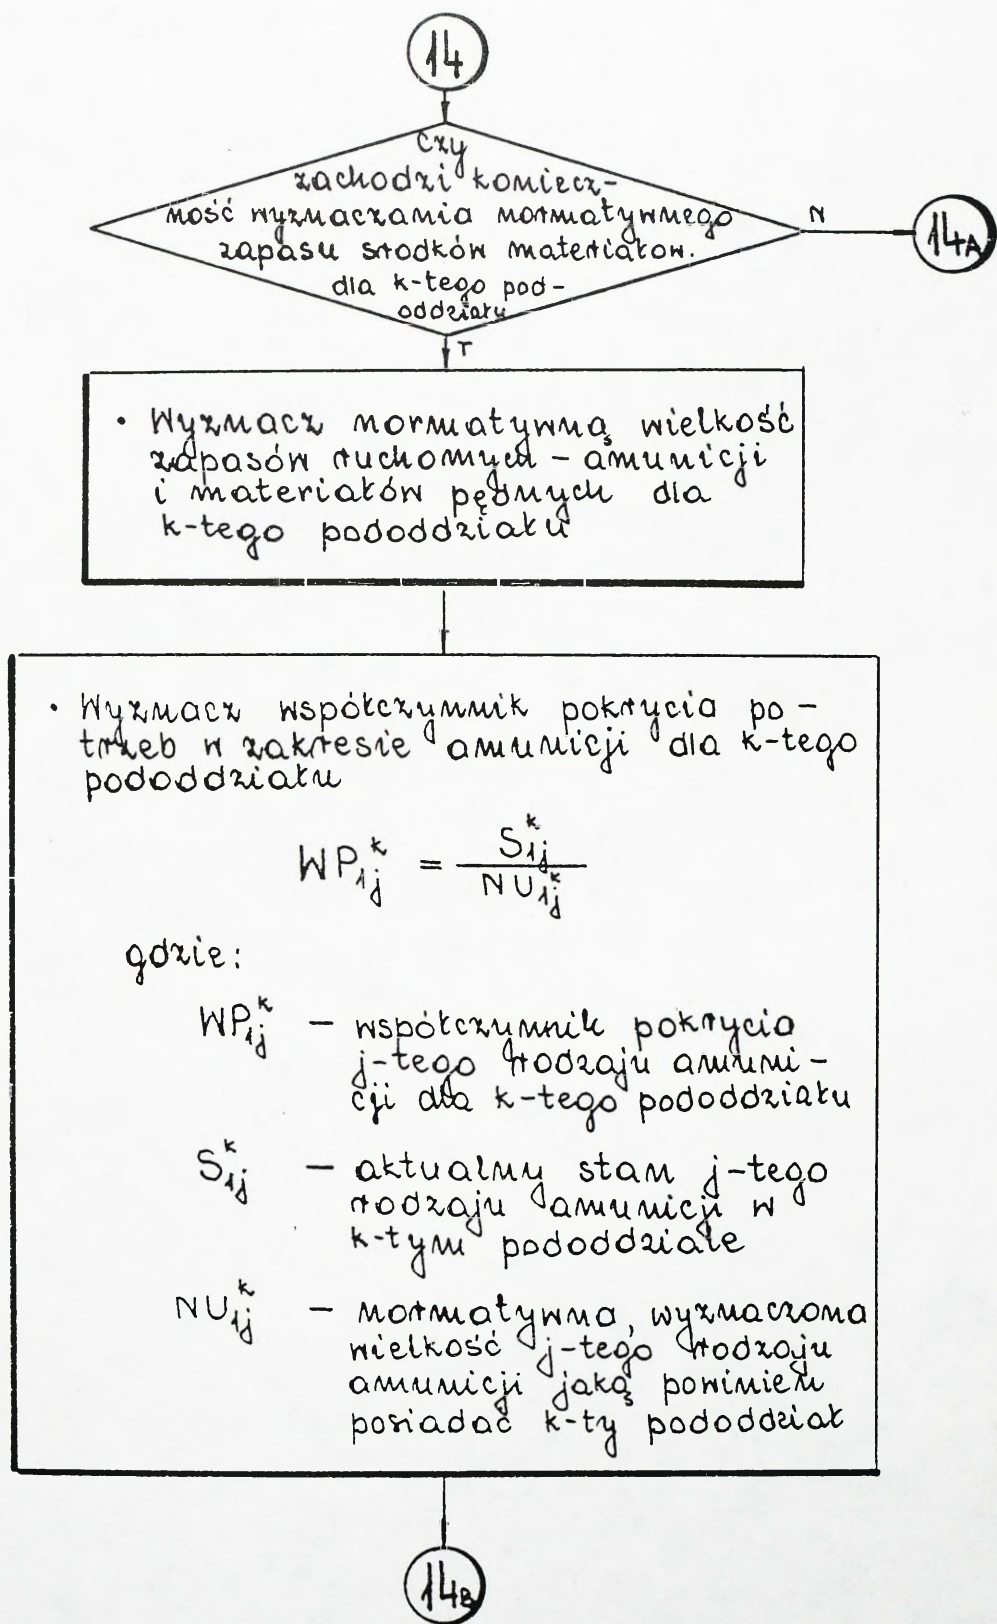 14
Czy
zachodzi koniecz-
ność wyznaczania normatywnego
zapasu srodków materiałow.
dla k-tego pod-
oddziału
N
14A
T
• Wyznacz normatywną wielkość
zapasów ruchomych - amunicji
i materiałów pędnych dla
k-tego pododdziału
• Wyznacz współczynnik pokrycia po-
trzeb w zakresie amunicji dla k-tego
pododdziału
WP_{1j}^k = S_{1j}^k / NU_{1j}^k
gdzie:
WP_{1j}^k - współczynnik pokrycia
j-tego rodzaju amuni-
cji dla k-tego pododdziału
S_{1j}^k - aktualny stan j-tego
rodzaju amunicji w
k-tym pododdziale
NU_{1j}^k - normatywna, wyznaczona
wielkość j-tego rodzaju
amunicji jaką powinien
posiadać k-ty pododdział
14B